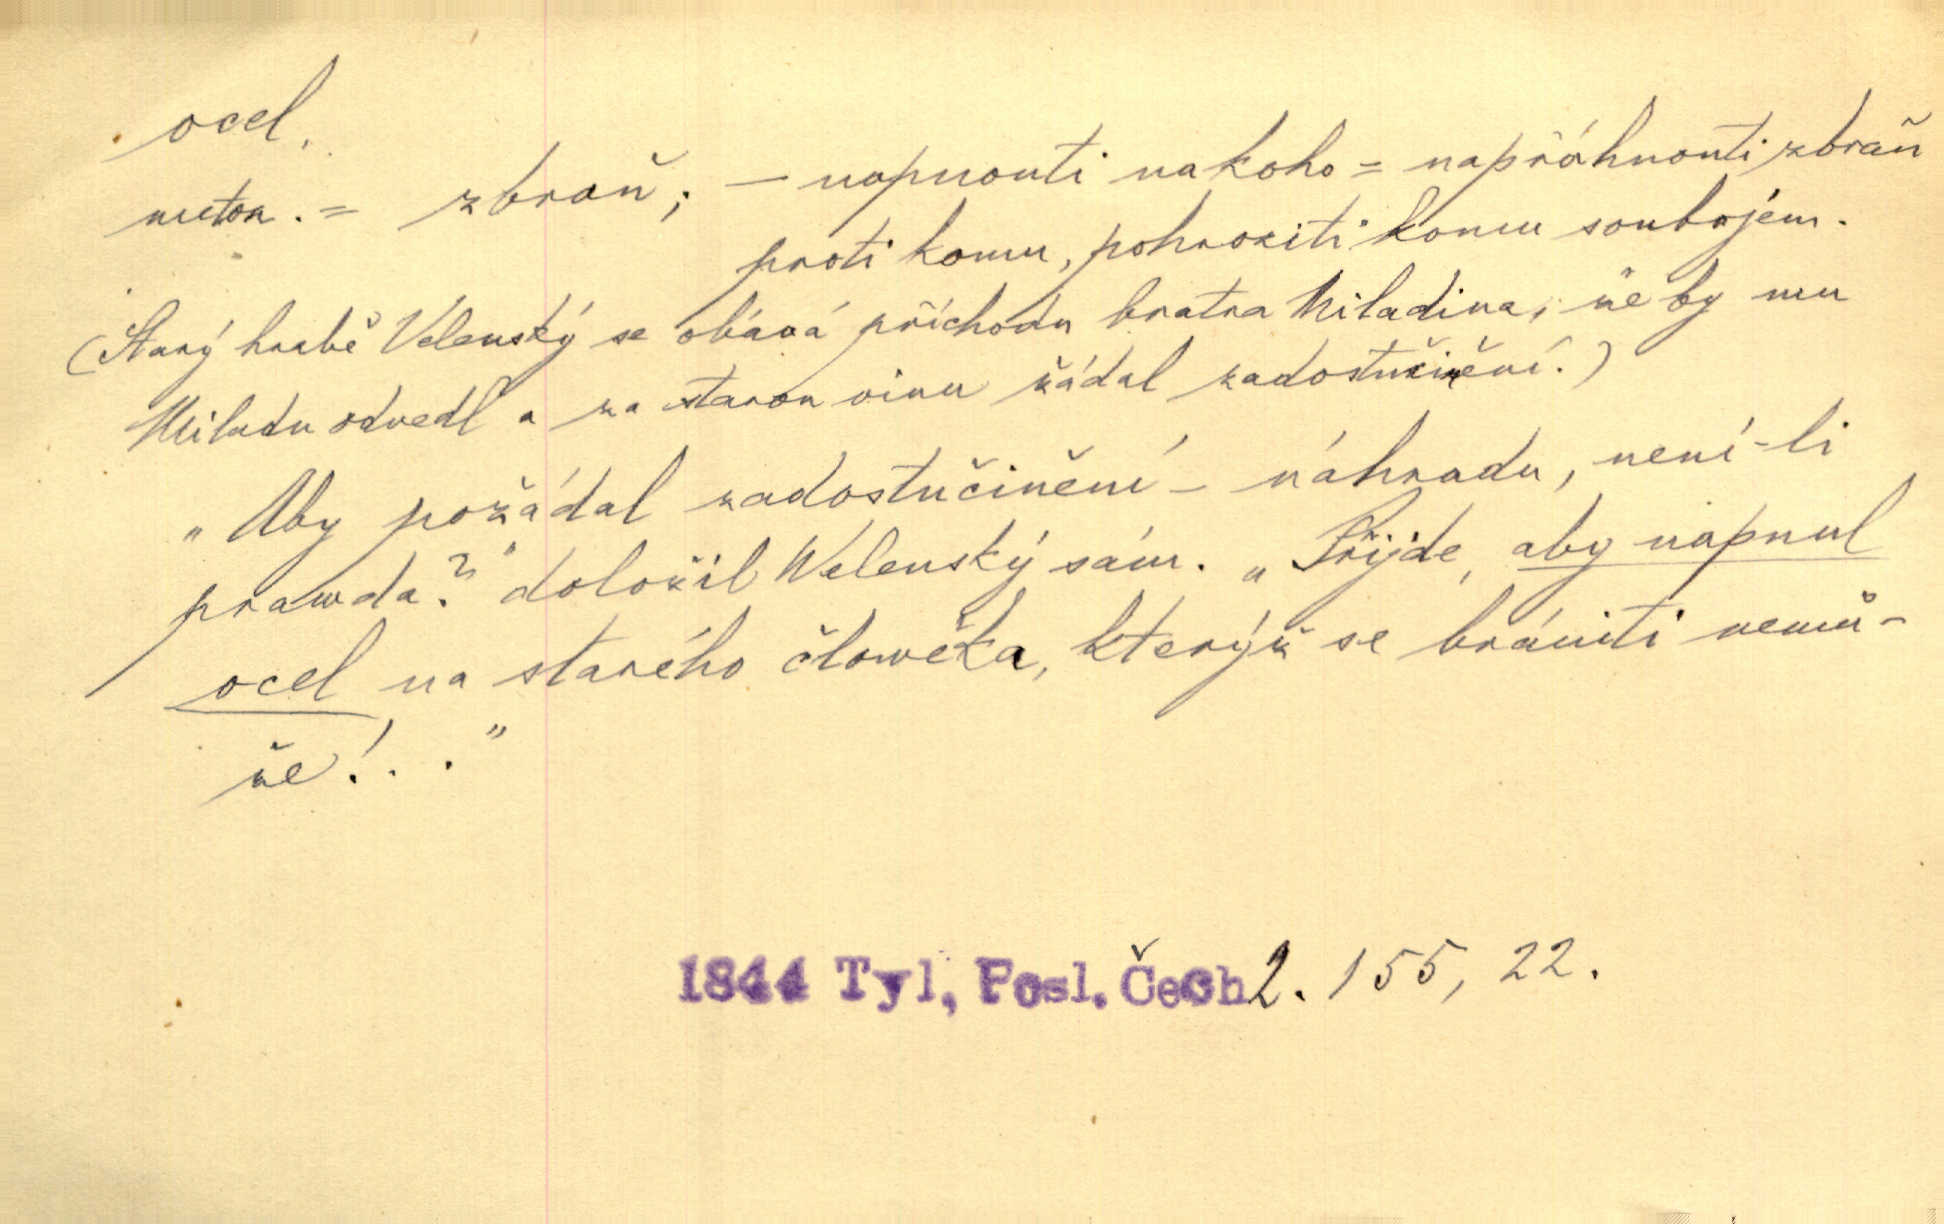 ocel.
meton. = zbraň; — napnouti na koho = napřáhnouti zbraň
proti komu, pohroziti komu soubojem.
(Starý hrabě Velenský se obává příchodu bratra Miladina, že by mu
Miladu odvedl a za starou vinu žádal zadostučinění.)
„Aby požádal zadostučinění – náhradu, není-li
prawda?“ doložil Welenský sám. „Přijde, aby napnul
ocel na starého člowěka, kterýž se brániti nemů-
že! . .“
1844 Tyl, Posl. Čech 2. 155, 22.